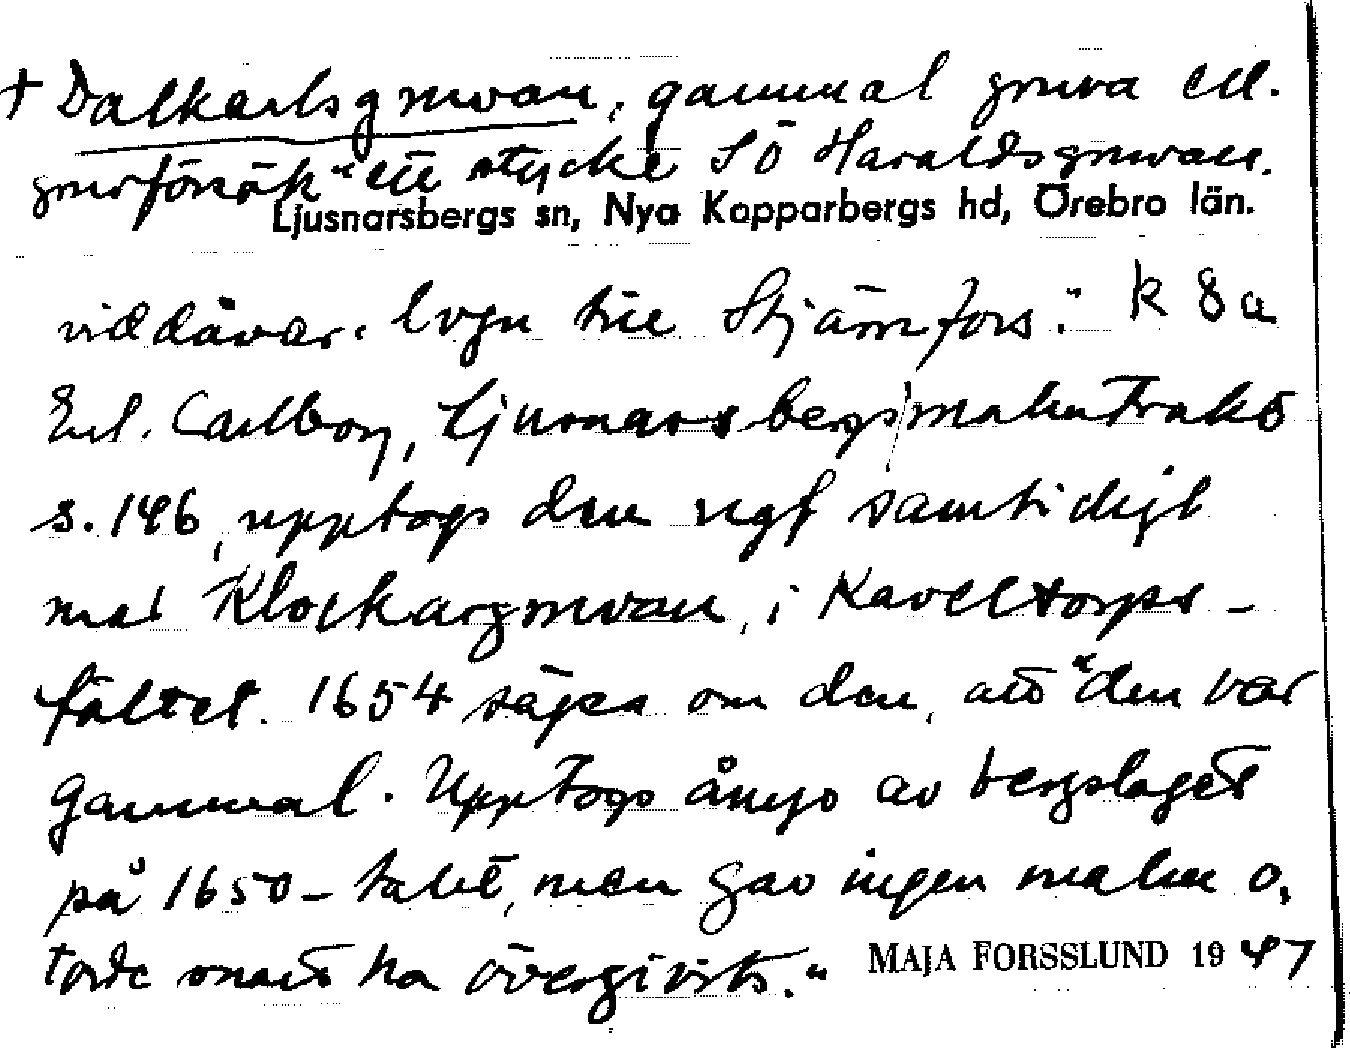 + Dalkarlsgruvan, gammal gruva ell.
gruvförsök "ett stycke SÖ Haraldsgruvan.
Ljusnarsbergs sn, Nya Kopparbergs hd, Örebro län.
vid dåvar. vägen till Stjärnfors." R 8 a
Enl. Carlborg, Ljusnarsbergsmalmtrakt
s. 146, upptogs den ngf samtidigt
med Klockargruvan, i Kaveltorps-
fältet. 1654 säges om den, att "den var
gammal. Upptogs ånyo av bergslaget
på 1650-talet, men gav ingen malm o.
torde snart ha övergivits."
MAJA FORSSLUND 1947